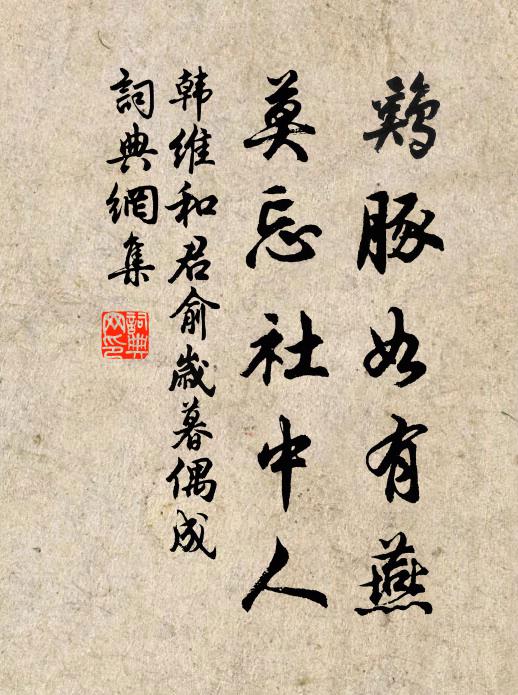 鷄豚如有燕
莫忘社中人
韩維和君俞歲暮偶成
詞典網集
詞典网印